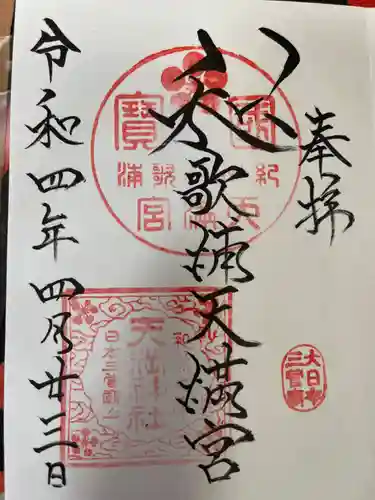 奉拝
和歌浦天満宮
令和四年四月廿三日
國寶
紀
歌浦
宮
天満神社
日本三菅廟
大日本
三菅廟